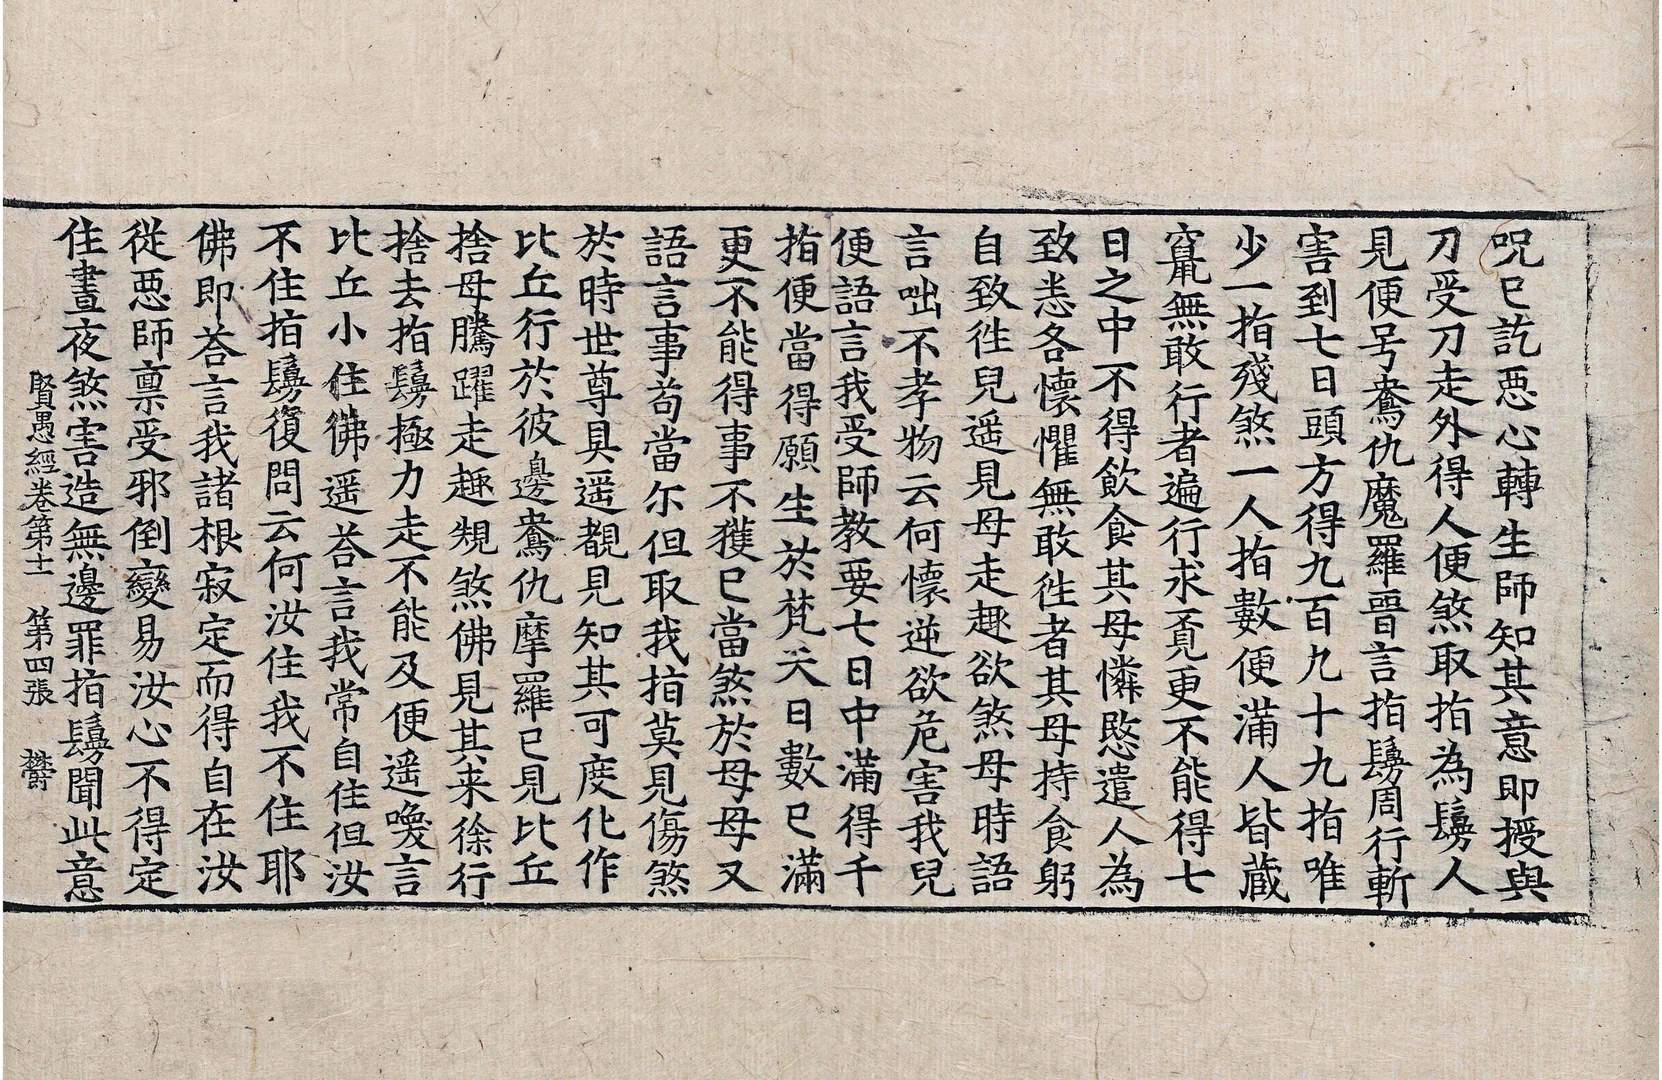 呪已訖惡心轉生師知其意即授與
刀受刀走外得人便煞取指為鬘人
見便号鴦仇魔羅晉言指鬘周行斬
害到七日頭方得九百九十九指唯
少一指殘煞一人指數便滿人皆藏
竄無敢行者遍行求覓更不能得七
日之中不得飲食其母憐愍遣人為
致悉各懷懼無敢往者其母持食躬
自致往兒遥見母走趣欲煞母時語
言咄不孝物云何懷逆欲危害我兒
便語言我受師教要七日中滿得千
指便當得願生於梵天日數已滿
更不能得事不獲已當煞於母母又
語言事苟當尔但取我指莫見傷煞
於時世尊具遥覩見知其可度化作
比丘行於彼邊鴦仇摩羅已見比丘
捨母騰躍走趣規煞佛見其来徐行
捨去指鬘極力走不能及便遥喚言
比丘小住佛遥荅言我常自住但汝
不住指鬘復問云何汝住我不住耶
佛即荅言我諸根寂定而得自在汝
從惡師稟受邪倒變易汝心不得定
住晝夜煞害造無邊罪指鬘聞此意
賢愚經卷第十一　第四張　欝